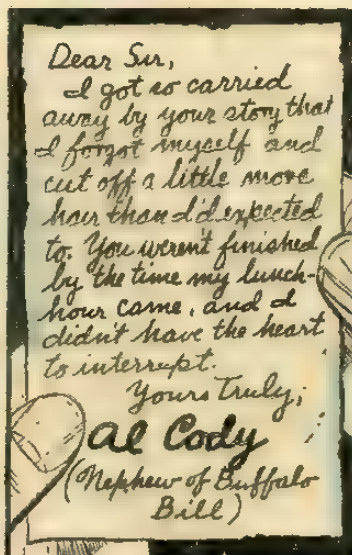 Dear Sir,
I got so carried
away by your story that
I forgot myself and
cut off a little more
hair than I'd expected
to. You weren't finished
by the time my lunch-
hour came, and I
didn't have the heart
to interrupt.
Yours Truly,
Al Cody
(Nephew of Buffalo
Bill)